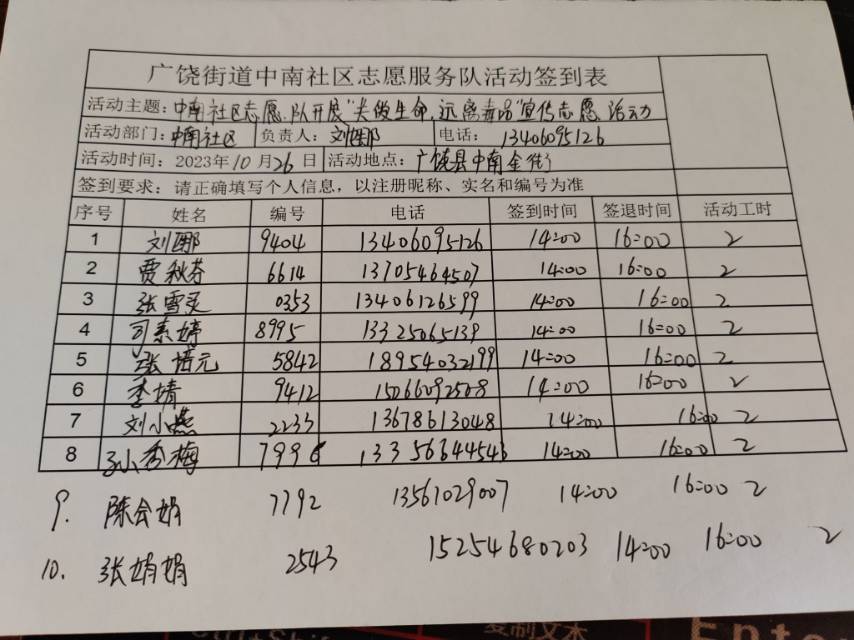 广饶街道中南社区志愿服务队活动签到表
活动主题：中南社区志愿队开展"关做生命，远离毒品"宣传志愿活动
活动部门：中南社区 负责人：刘娜 电话：13406095126
活动时间：2023年10月26日 活动地点：广饶县中南金街
签到要求：请正确填写个人信息，以注册昵称、实名和编号为准
序号 姓名 编号 电话 签到时间 签退时间 活动工时
1 刘娜 9404 13406095126 14:00 16:00 2
2 贾秋芬 6614 13705464507 14:00 16:00 2
3 张雪灵 0353 13406126599 14:00 16:00 2
4 司素婷 8995 13325065139 14:00 16:00 2
5 张培元 5842 18954032199 14:00 16:00 2
6 季婧 9412 15066092508 14:00 16:00 2
7 刘小燕 2233 13678613048 14:00 16:00 2
8 孙香梅 7996 13356644543 14:00 16:00 2
9. 陈会娟 7792 13561029007 14:00 16:00 2
10. 张娟娟 2543 15254680203 14:00 16:00 2
复制文本 Enter